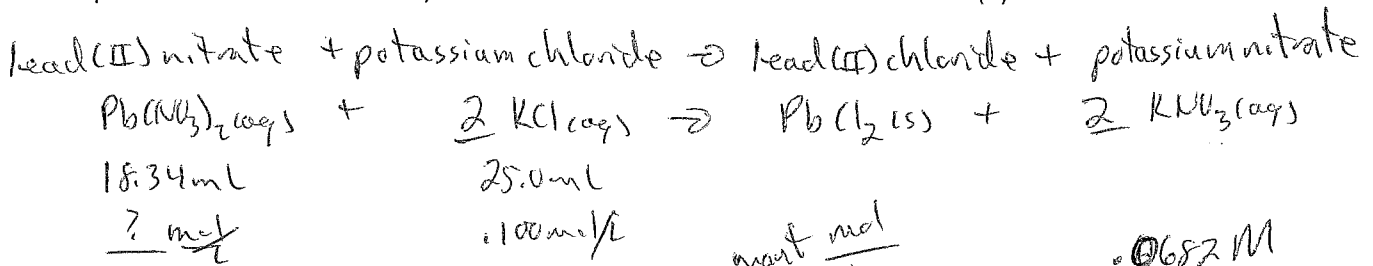 lead(II) nitrate + potassium chloride → lead(II) chloride + potassium nitrate
Pb(NO₃)₂(aq) + 2 KCl(aq) → PbCl₂(s) + 2 KNO₃(aq)
18.34mL 25.0mL
? mol/L .100mol/L want mol .0682 M